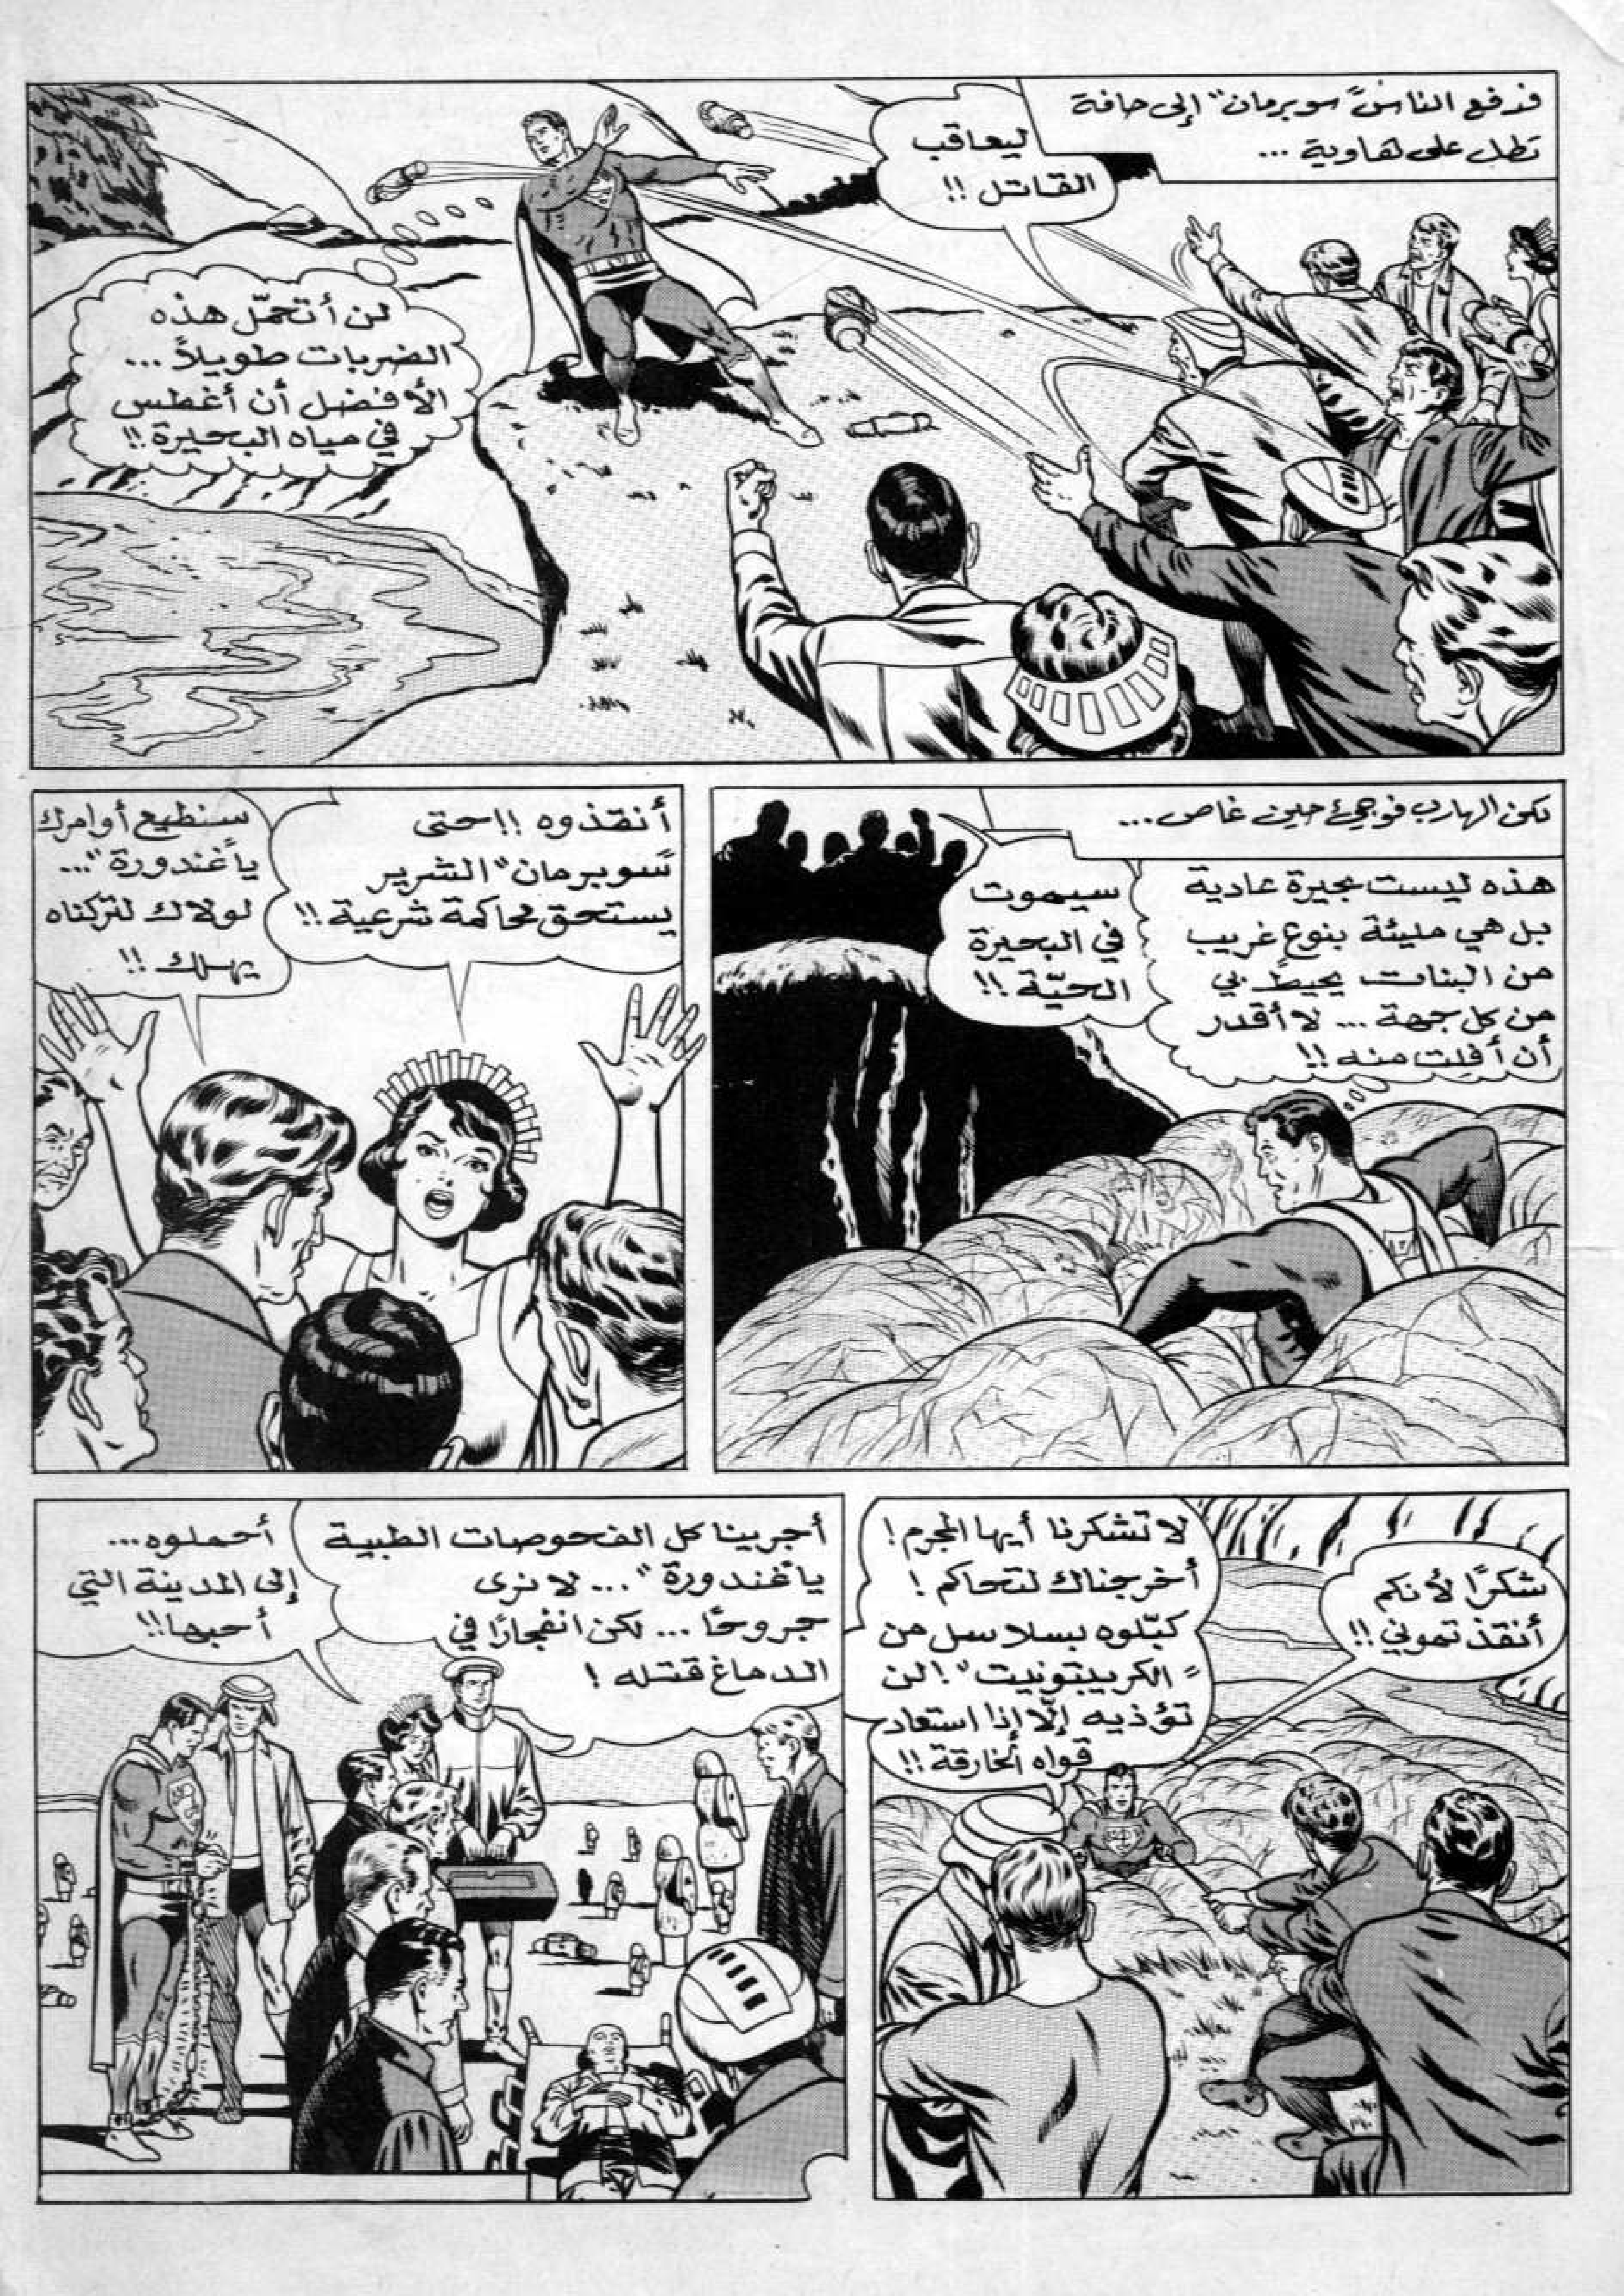 فدفع الناس "سوبرمان" إلى حافة
تطل على هاوية ...
ليعاقب
القاتل !!
لن أتحمّل هذه
الضربات طويلاً ...
الأفضل أن أغطس
في مياه البحيرة !!
لكن الهارب فوجئ حين غاص ...
هذه ليست بحيرة عادية
بل هي مليئة بنوع غريب
من النبات يحيط بي
من كل جهة ... لا أقدر
أن أفلت منه !!
سيموت
في البحيرة
الحيّة !!
أنقذوه !! حتى
"سوبرمان" الشرير
يستحق محاكمة شرعية !!
سنطيع أوامرك
يا "غندورة" ...
لولاك لتركناه
يهلك !!
شكرًا لأنكم
أنقذتموني !!
لا تشكرنا أيها المجرم !
أخرجناك لتحاكم !
كبّلوه بسلاسل من
"الكريبتونيت" ! لن
تؤذيه إلّا إذا استعاد
قواه الخارقة !!
أجرينا كل الفحوصات الطبية
يا "غندورة" ... لا نرى
جروحًا ... لكن انفجارًا في
الدماغ قتله !
أحملوه ...
إلى المدينة التي
أحبها !!